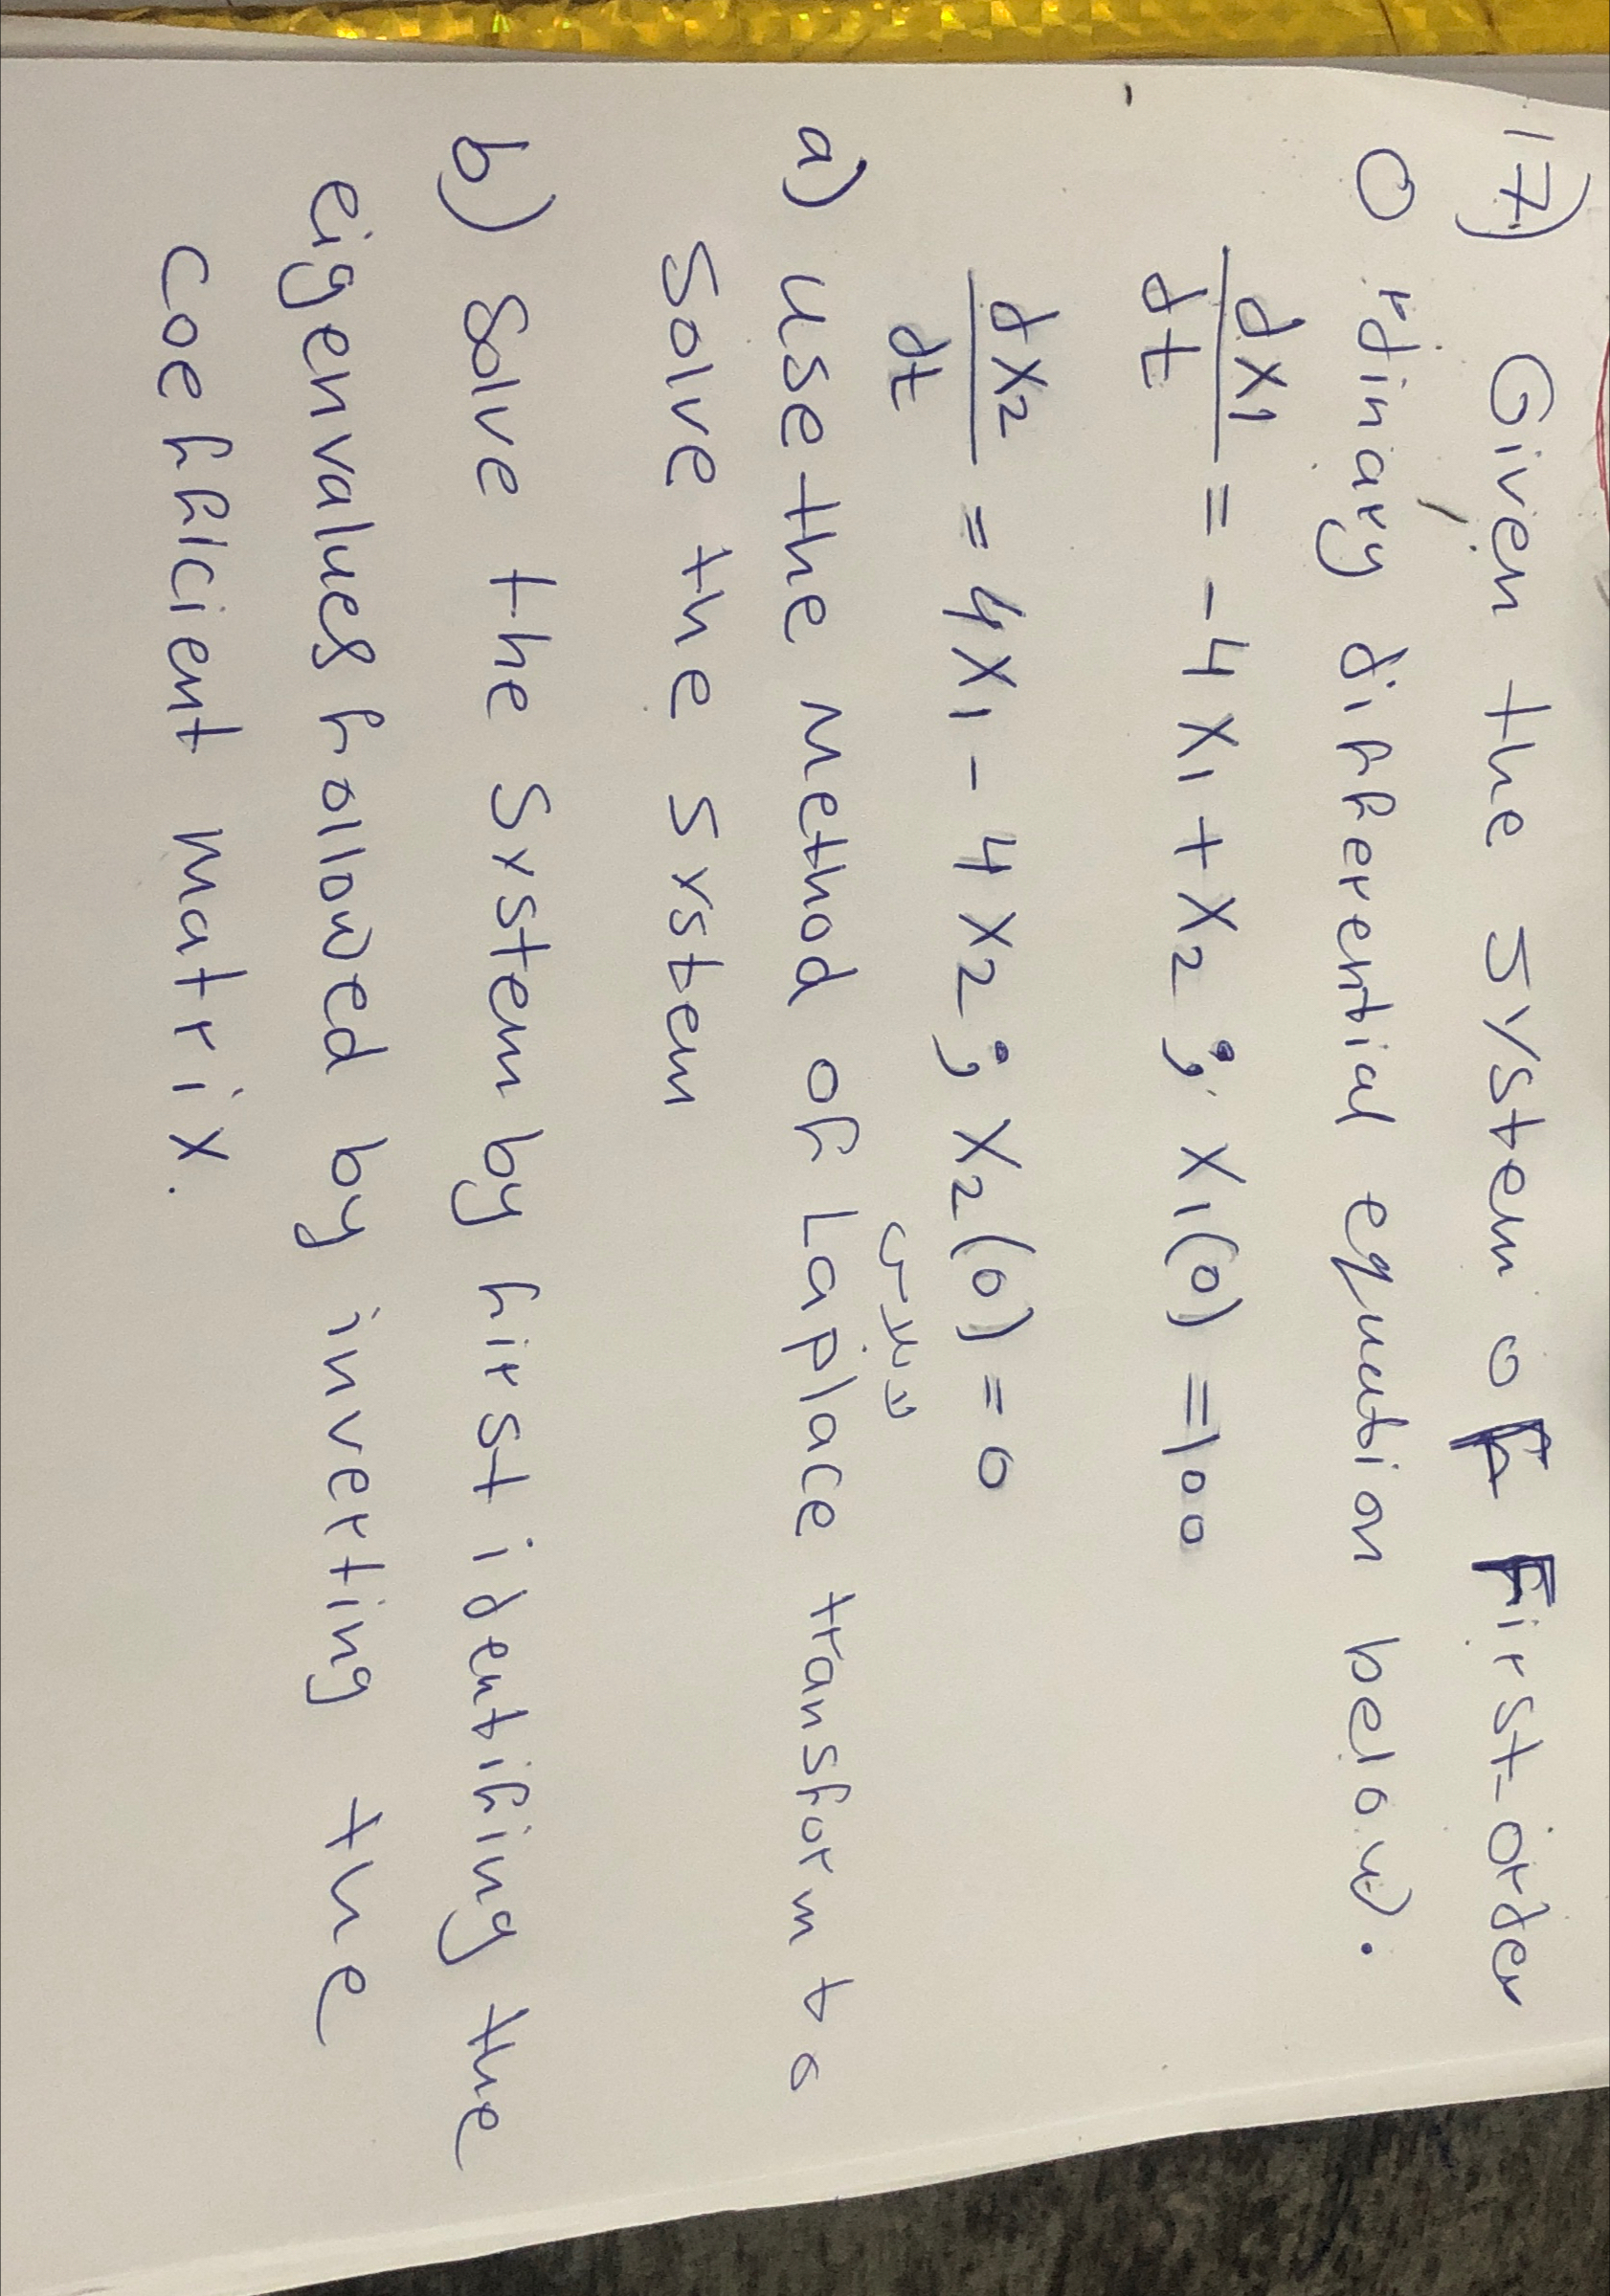 17) Given the system of First-order
Ordinary differential equation below.
dx1/dt = -4x1 + x2 ; x1(0) = 100
dx2/dt = 4x1 - 4x2 ; x2(0) = 0
a) use the method of Laplace transform to
Solve the system
b) Solve the system by first identifing the
eigenvalues followed by inverting the
coefficient matrix.